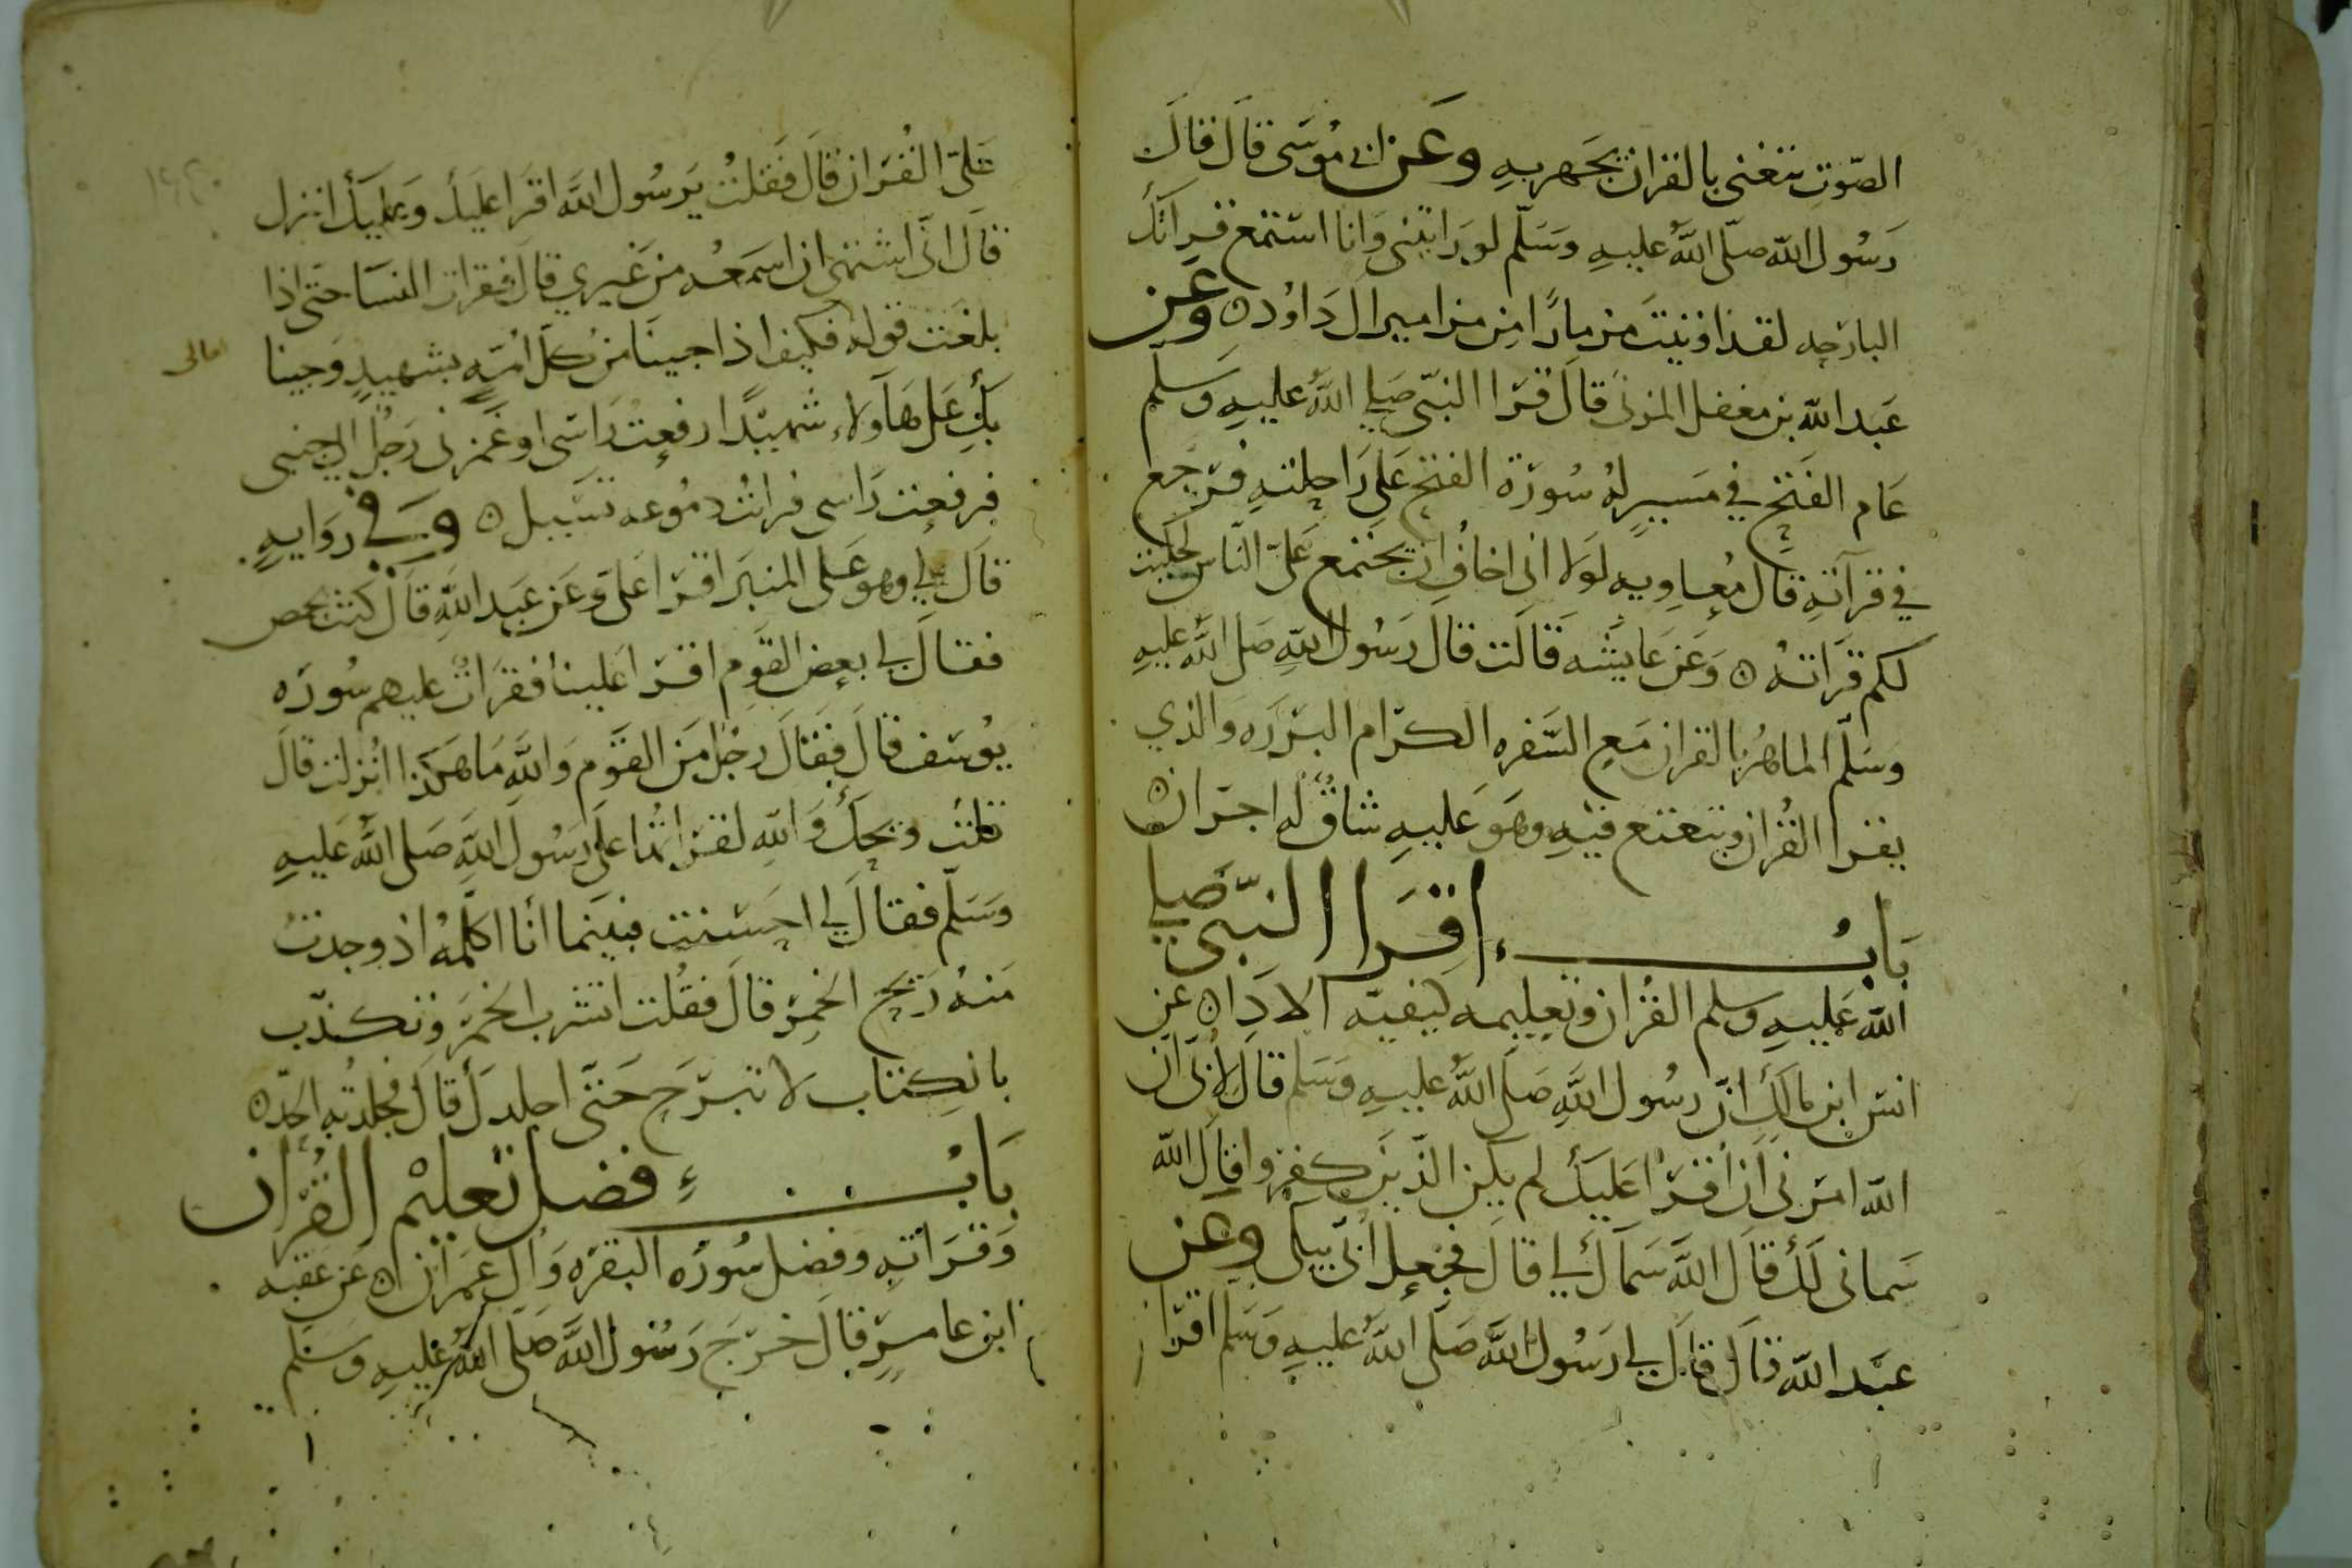 الصّوت يتغنى بالقران يجهر به وعن ابي موسى قال قال
رسول الله صلى الله عليه وسلم لو رايتني وانا استمع قراتك
البارحه لقد اوتيت مزمارا من مزامير ال داود ه وعن
عبد الله بن مغفل المزني قال قرا النبي صلى الله عليه وسلم
عام الفتح في مسير له سورة الفتح على راحلته فرجع
في قرآته قال معاويه لولا اني اخاف ان يجتمع على الناس لحكيت
لكم قراته ه وعن عايشه قالت قال رسول الله صلى الله عليه
وسلم الماهر بالقران مع السفره الكرام البرره والذي
يقرا القران ويتعتع فيه وهو عليه شاق له اجران ه
باب اقرا النبي صلى
الله عليه وسلم القران وتعليمه كيفيه الادا ه عن
انس ابن مالك ان رسول الله صلى الله عليه وسلم قال لابي ان
الله امرني ان اقرا عليك لم يكن الذين كفروا قال الله
سماني لك قال الله سماك لي قال فجعل ابي يبكي وعن
عبد الله قال قال لي رسول الله صلى الله عليه وسلم اقرا
علي القران قال فقلت يرسول الله اقرا عليك وعليك انزل
قال اني اشتهي ان اسمعه من غيري قال فقرات النسا حتى اذا
بلغت قوله فكيف اذا جينا من كل امة بشهيد وجينا
بك على هآولاء شهيدا رفعت راسي او غمزني رجل الى جنبي
فرفعت راسي فرايت دموعه تسيل ه وفي روايه
قال لي وهو على المنبر اقرا علي وعن عبد الله قال كنت بحمص
فقال لي بعض القوم اقرا علينا فقرات عليهم سوره
يوسف قال فقال رجل من القوم والله ما هكذا انزلت قال
قلت ويحك والله لقد قراتها على رسول الله صلى الله عليه
وسلم فقال لي احسنت فبينما انا اكلمه اذ وجدت
منه ريح الخمر قال فقلت اتشرب الخمر وتكذب
بالكتاب لا تبرح حتى اجلدك قال فجلدته الحد ه
باب فضل تعليم القران
وقراته وفضل سوره البقره وال عمران ه عن عقبه
ابن عامر قال خرج رسول الله صلى الله عليه وسلم